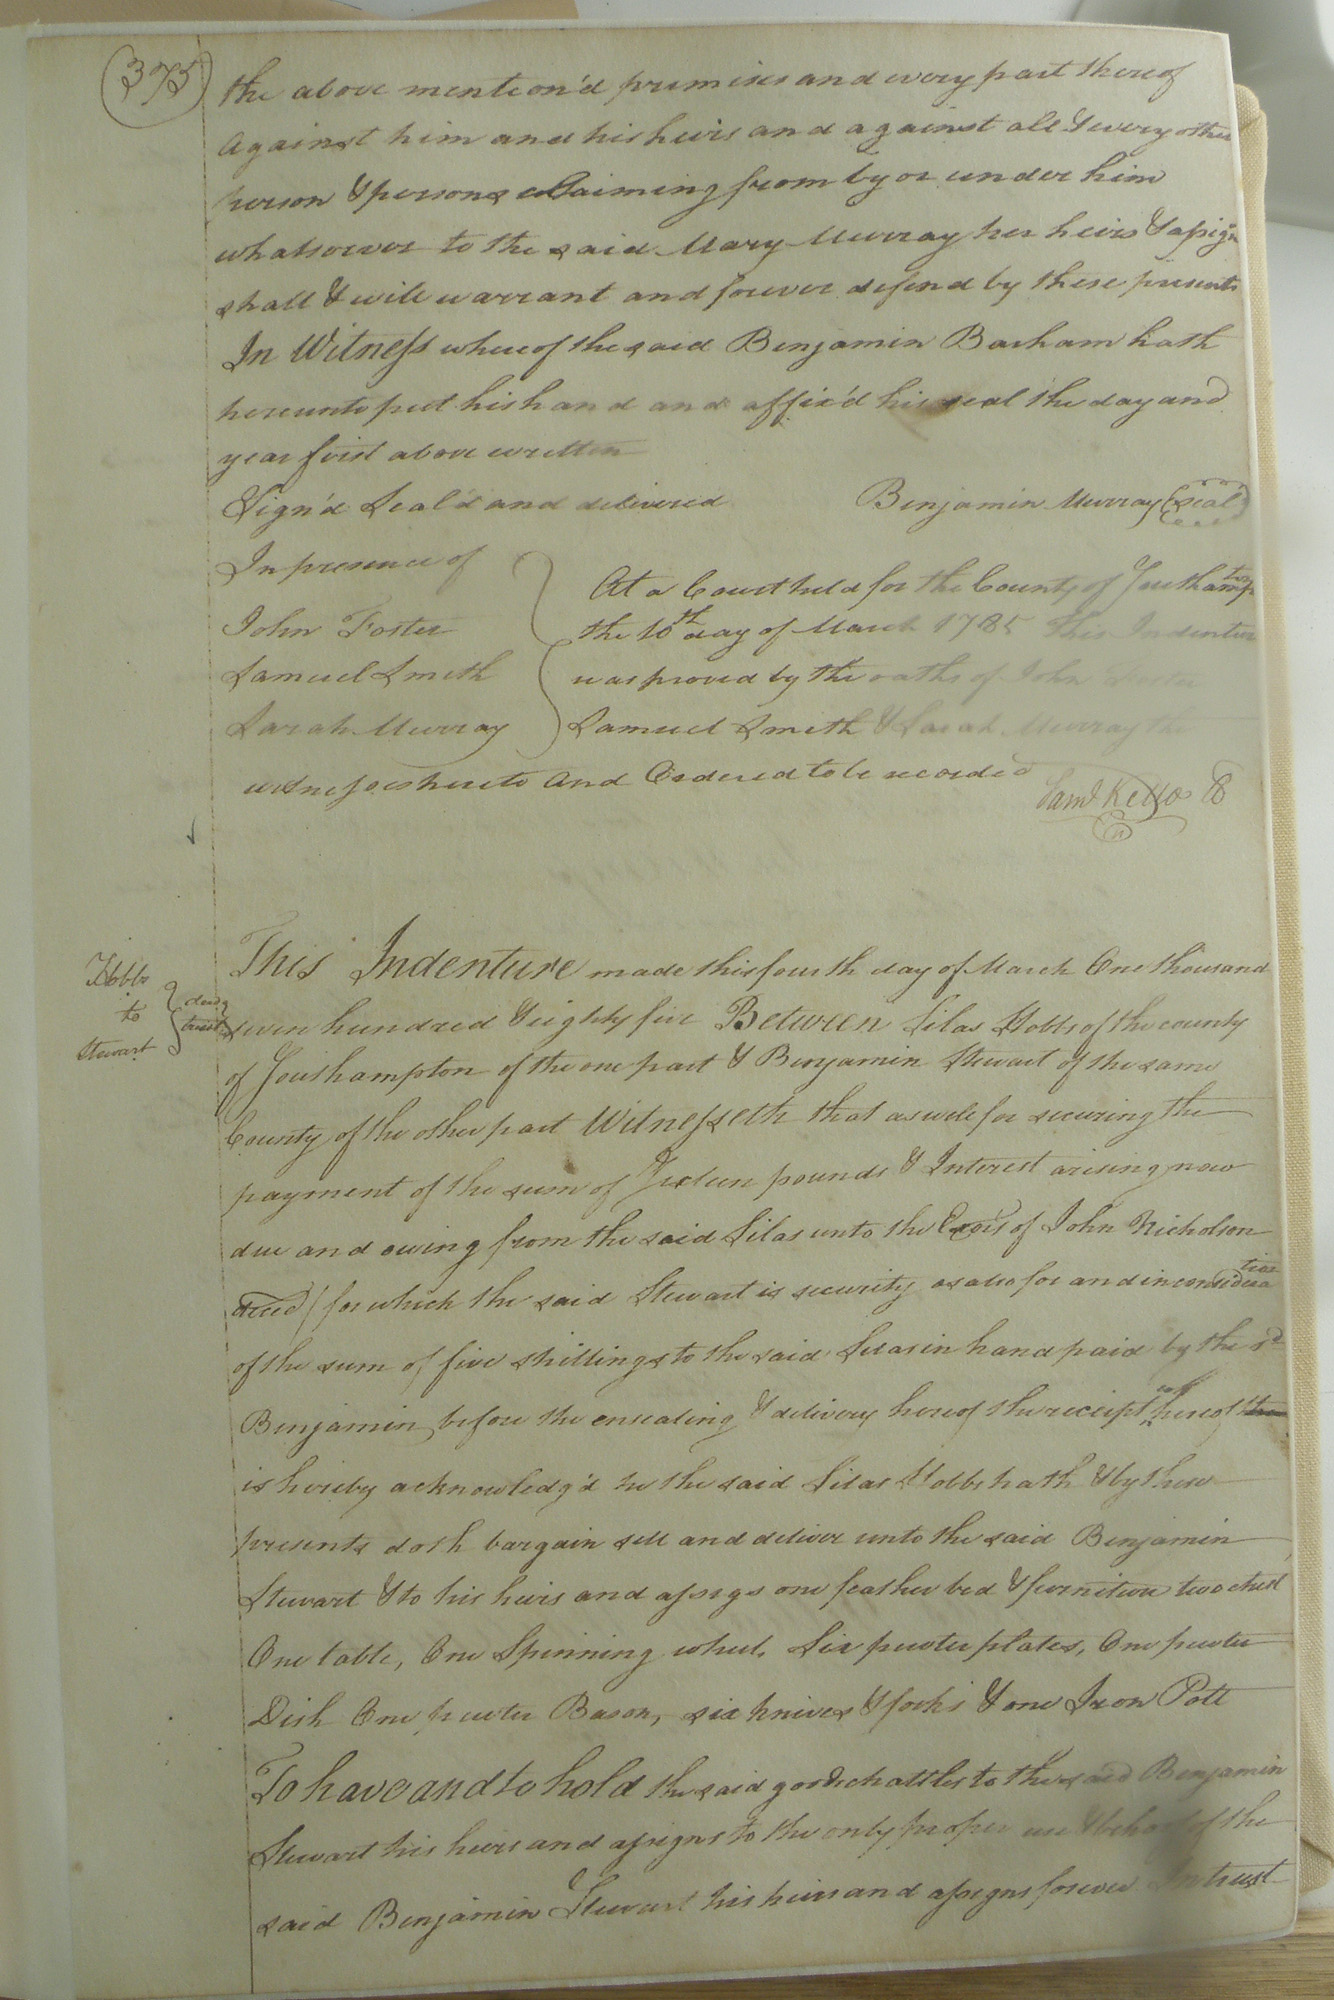 375
the above mention'd premises and every part thereof
against him and his heirs and against all & every other
person & persons claiming from by or under him
whatsoever to the said Mary Murray her heirs & assigns
shall & will warrant and forever defend by these presents
In Witness whereof the said Benjamin Barham hath
hereunto put his hand and affix'd his seal the day and
year first above written
Sign'd Seal'd and delivered Benjamin Murray (seal)
In presence of
John Foster
Samuel Smith
Sarah Murray
At a Court held for the County of Southampton
the 10th day of March 1785 This Indenture
was proved by the oaths of John Foster
Samuel Smith & Sarah Murray the
witnesses hereto and Ordered to be recorded
Saml Kello C
Hobbs
to
Stewart
deed
trust
This Indenture made this fourth day of March One thousand
seven hundred & eighty five Between Silas Hobbs of the county
of Southampton of the one part & Benjamin Stewart of the same
County of the other part Witnesseth that as well for securing the
payment of the sum of pounds & Interest arising now
due and owing from the said Silas unto the Exors of John Nicholson
deced / for which the said Stewart is security as also for and in consideration
of the sum of five shillings to the said Silas in hand paid by the sd
Benjamin before the ensealing & delivery hereof the receipt whereof
is hereby acknowledg'd he the said Silas Hobbs hath & by these
presents doth bargain sell and deliver unto the said Benjamin
Stewart & to his heirs and assigs one feather bed & furniture two chest
One table, One Spinning wheel, Six pewter plates, One pewter
Dish One pewter Bason, six knives & forks & one Iron Pott
To have and to hold the said goods chattles to the said Benjamin
Stewart his heirs and assigns to the only proper use & behoof of the
said Benjamin Stewart his heirs and assigns forever In trust